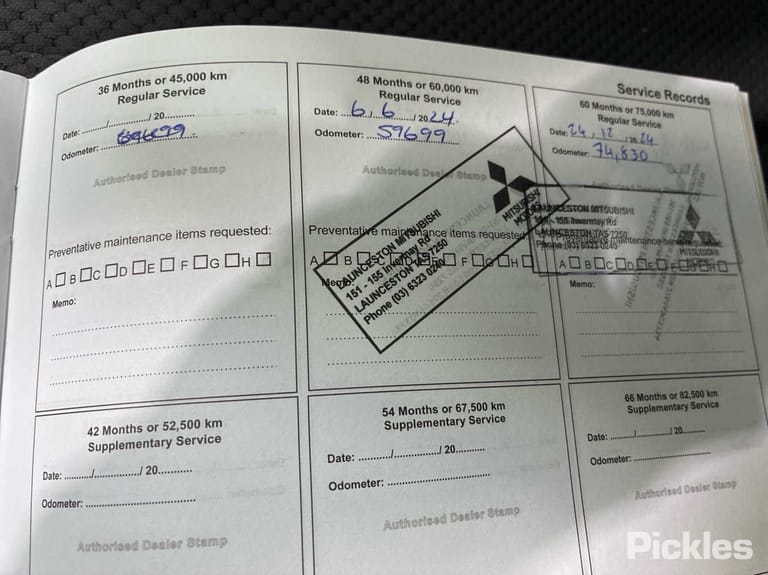 Service Records
36 Months or 45,000 km
Regular Service
Date: ........./............/ 20...........
Odometer:
Authorised Dealer Stamp
Preventative maintenance items requested:
A B C D E F G H
Memo:
48 Months or 60,000 km
Regular Service
Date: 6/6/2024
Odometer: 59699
Authorised Dealer Stamp
MITSUBISHI
LAUNCESTON MITSUBISHI
151 - 155 Invermay Rd
LAUNCESTON TAS 7250
Phone (03) 6323 0240
Preventative maintenance items requested
A B C D E F G H
Memo:
60 Months or 75,000 km
Regular Service
Date: 24, 12, 2024
Odometer: 74,830
LAUNCESTON MITSUBISHI
151 - 155 Invermay Rd
LAUNCESTON TAS 7250
Phone (03) 6323 0240
MITSUBISHI
Preventative maintenance items requested
A B C D E F G H
Memo:
42 Months or 52,500 km
Supplementary Service
Date: ........../............../ 20...........
Odometer: ....................................
Authorised Dealer Stamp
54 Months or 67,500 km
Supplementary Service
Date: ........../............../ 20...........
Odometer: ....................................
Authorised Dealer Stamp
66 Months or 82,500 km
Supplementary Service
Date: ........../............../ 20...........
Odometer: ....................................
Authorised Dealer Stamp
Pickles